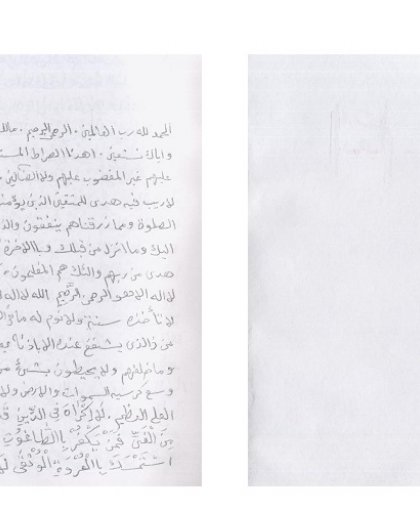 الحمد لله رب العالمين . الرحمن الرحيم . مالك
واياك نستعين . اهدنا الصراط المست
عليهم غير المغضوب عليهم ولا الضالين
لاريب فيه هدى للمتقين الذين يؤمنو
الصلوة ومما رزقناهم ينفقون والذ
اليك وما انزل من قبلك وباالاخرة
هدى من ربهم والئك هم المفلحون
لااله الاهو الرحمن الرحيم الله لااله
لا تأخذه سنة ولا نوم له ما في ال
من ذالذى يشفع عنده الا باذنه
وما خلفهم ولا يحيطون بشئ من
وسع كرسيه السموات والارض ولا
العلى العظيم . لا اكراه في الدين قد
من الغي فمن يكفر باالطاغوت
استمسك باالعروة الوثقى لا